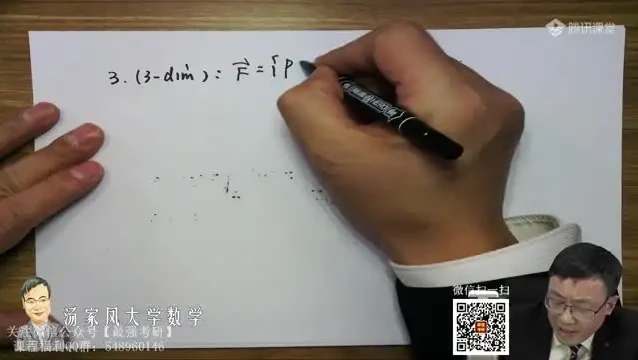 腾讯课堂
3. (3-dim): F⃗ = { P
微信扫一扫
汤家凤大学数学
关注微信公众号【最强考研】
课程福利QQ群：548960146